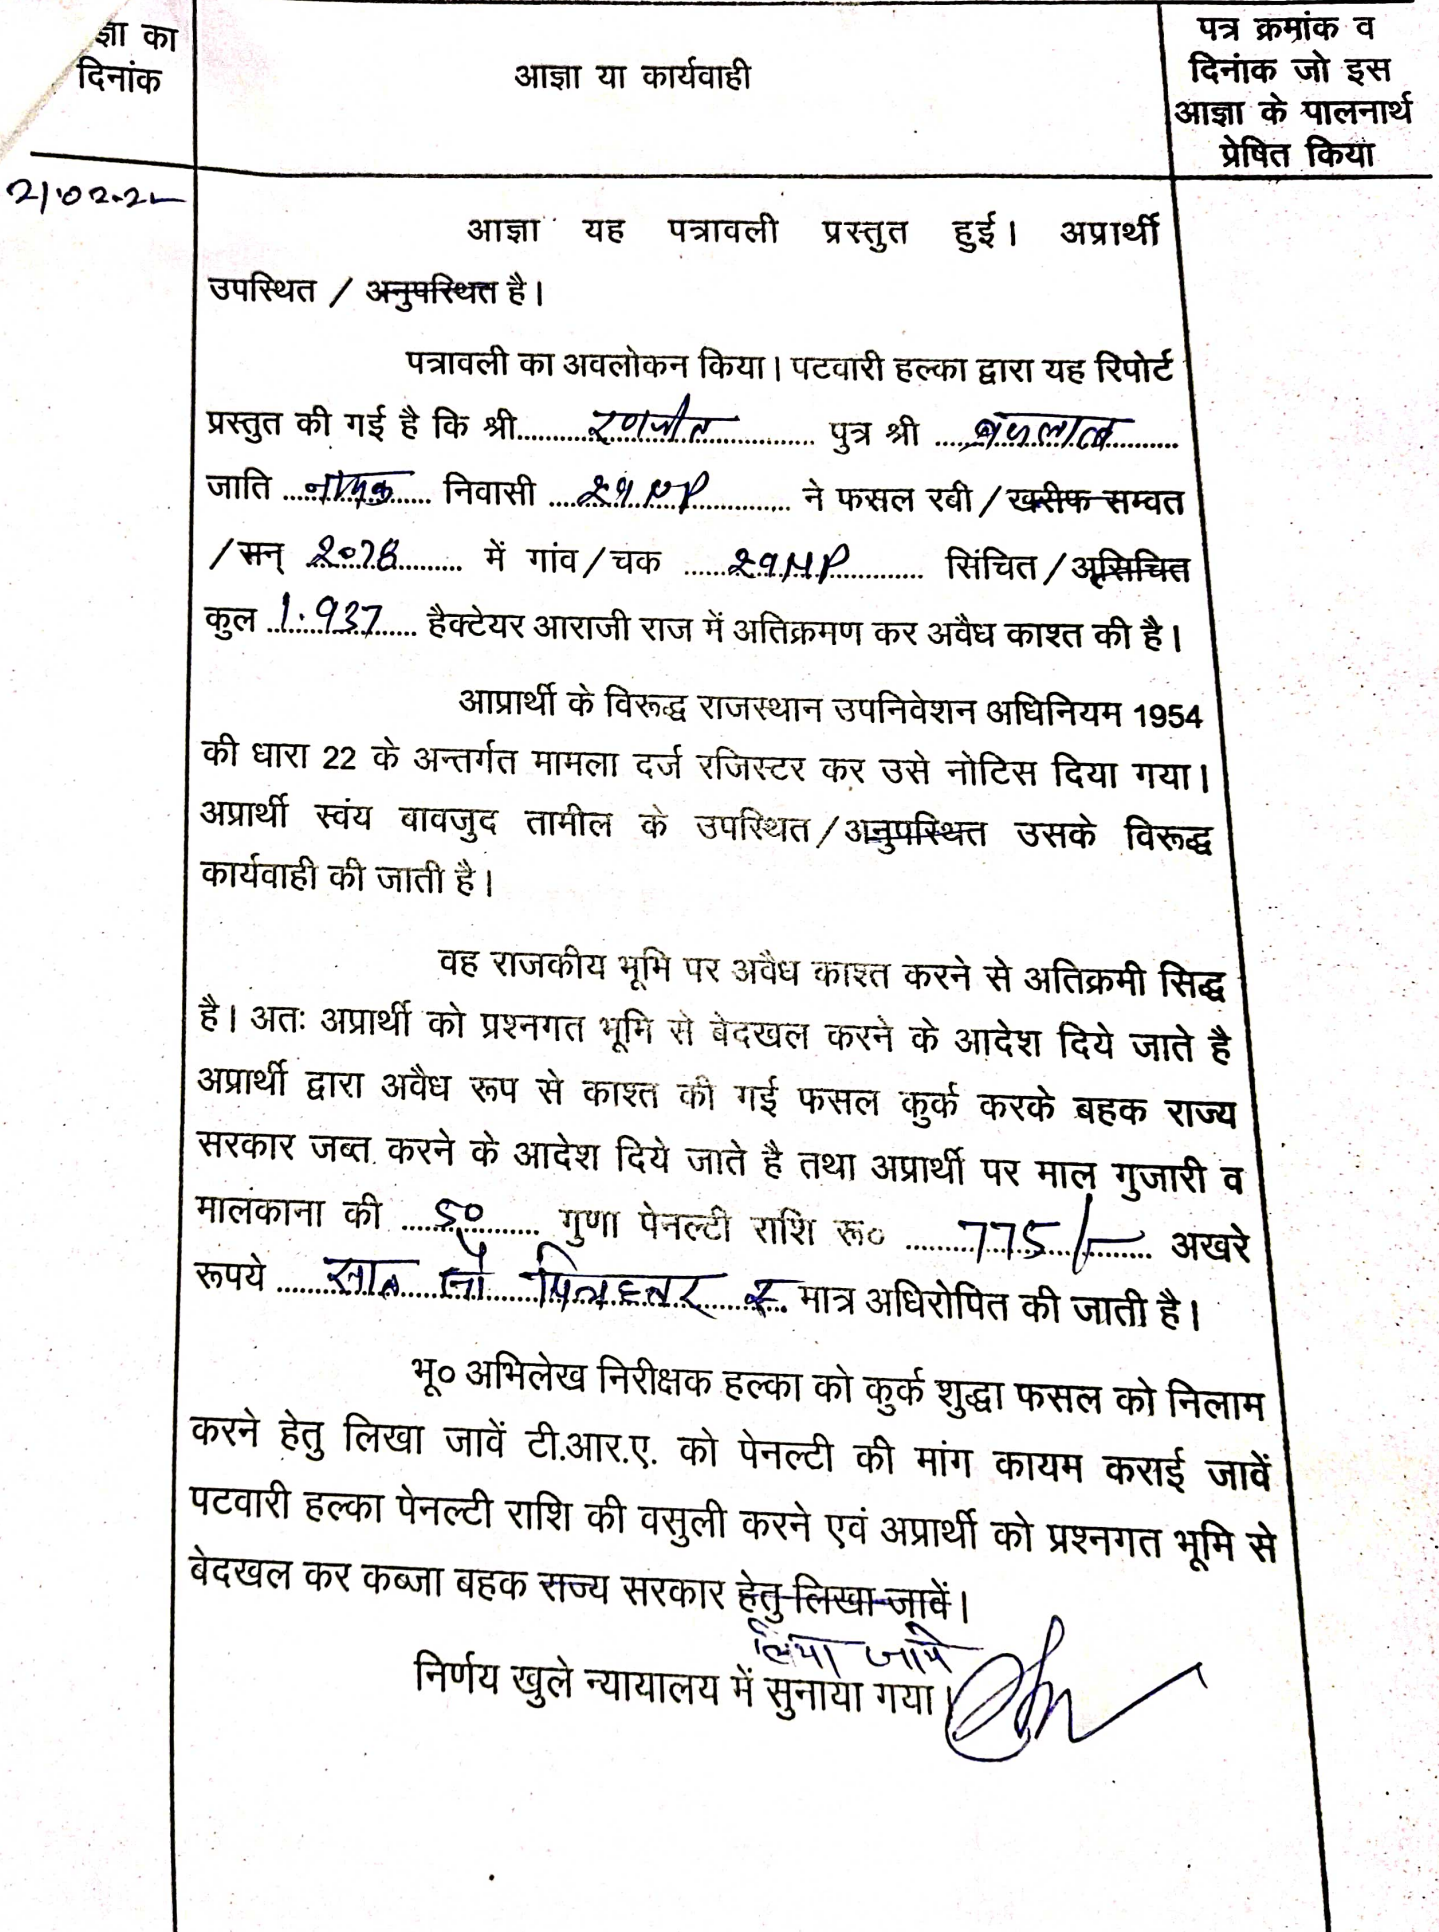 ज्ञा का
दिनांक
आज्ञा या कार्यवाही
पत्र क्रमांक व
दिनांक जो इस
आज्ञा के पालनार्थ
प्रेषित किया
21.02.22
आज्ञा यह पत्रावली प्रस्तुत हुई। अप्रार्थी
उपस्थित / अनुपस्थित है।
पत्रावली का अवलोकन किया। पटवारी हल्का द्वारा यह रिपोर्ट
प्रस्तुत की गई है कि श्री रणजीत पुत्र श्री
जाति नायक निवासी ने फसल रबी / खरीफ सम्वत
/ सन् 2078 में गांव / चक सिंचित / असिंचित
कुल 1.937 हैक्टेयर आराजी राज में अतिक्रमण कर अवैध काश्त की है।
आप्रार्थी के विरूद्ध राजस्थान उपनिवेशन अधिनियम 1954
की धारा 22 के अन्तर्गत मामला दर्ज रजिस्टर कर उसे नोटिस दिया गया।
अप्रार्थी स्वंय बावजुद तामील के उपस्थित / अनुपस्थित उसके विरूद्ध
कार्यवाही की जाती है।
वह राजकीय भूमि पर अवैध काश्त करने से अतिक्रमी सिद्ध
है। अतः अप्रार्थी को प्रश्नगत भूमि से बेदखल करने के आदेश दिये जाते है
अप्रार्थी द्वारा अवैध रूप से काश्त की गई फसल कुर्क करके बहक राज्य
सरकार जब्त करने के आदेश दिये जाते है तथा अप्रार्थी पर माल गुजारी व
मालकाना की 50 गुणा पेनल्टी राशि रू० 775/- अखरे
रूपये सात सौ पिचहतर रू मात्र अधिरोपित की जाती है।
भू० अभिलेख निरीक्षक हल्का को कुर्क शुद्धा फसल को निलाम
करने हेतु लिखा जावें टी.आर.ए. को पेनल्टी की मांग कायम कराई जावें
पटवारी हल्का पेनल्टी राशि की वसुली करने एवं अप्रार्थी को प्रश्नगत भूमि से
बेदखल कर कब्जा बहक राज्य सरकार हेतु लिखा जावें।
लिया जावे
निर्णय खुले न्यायालय में सुनाया गया।